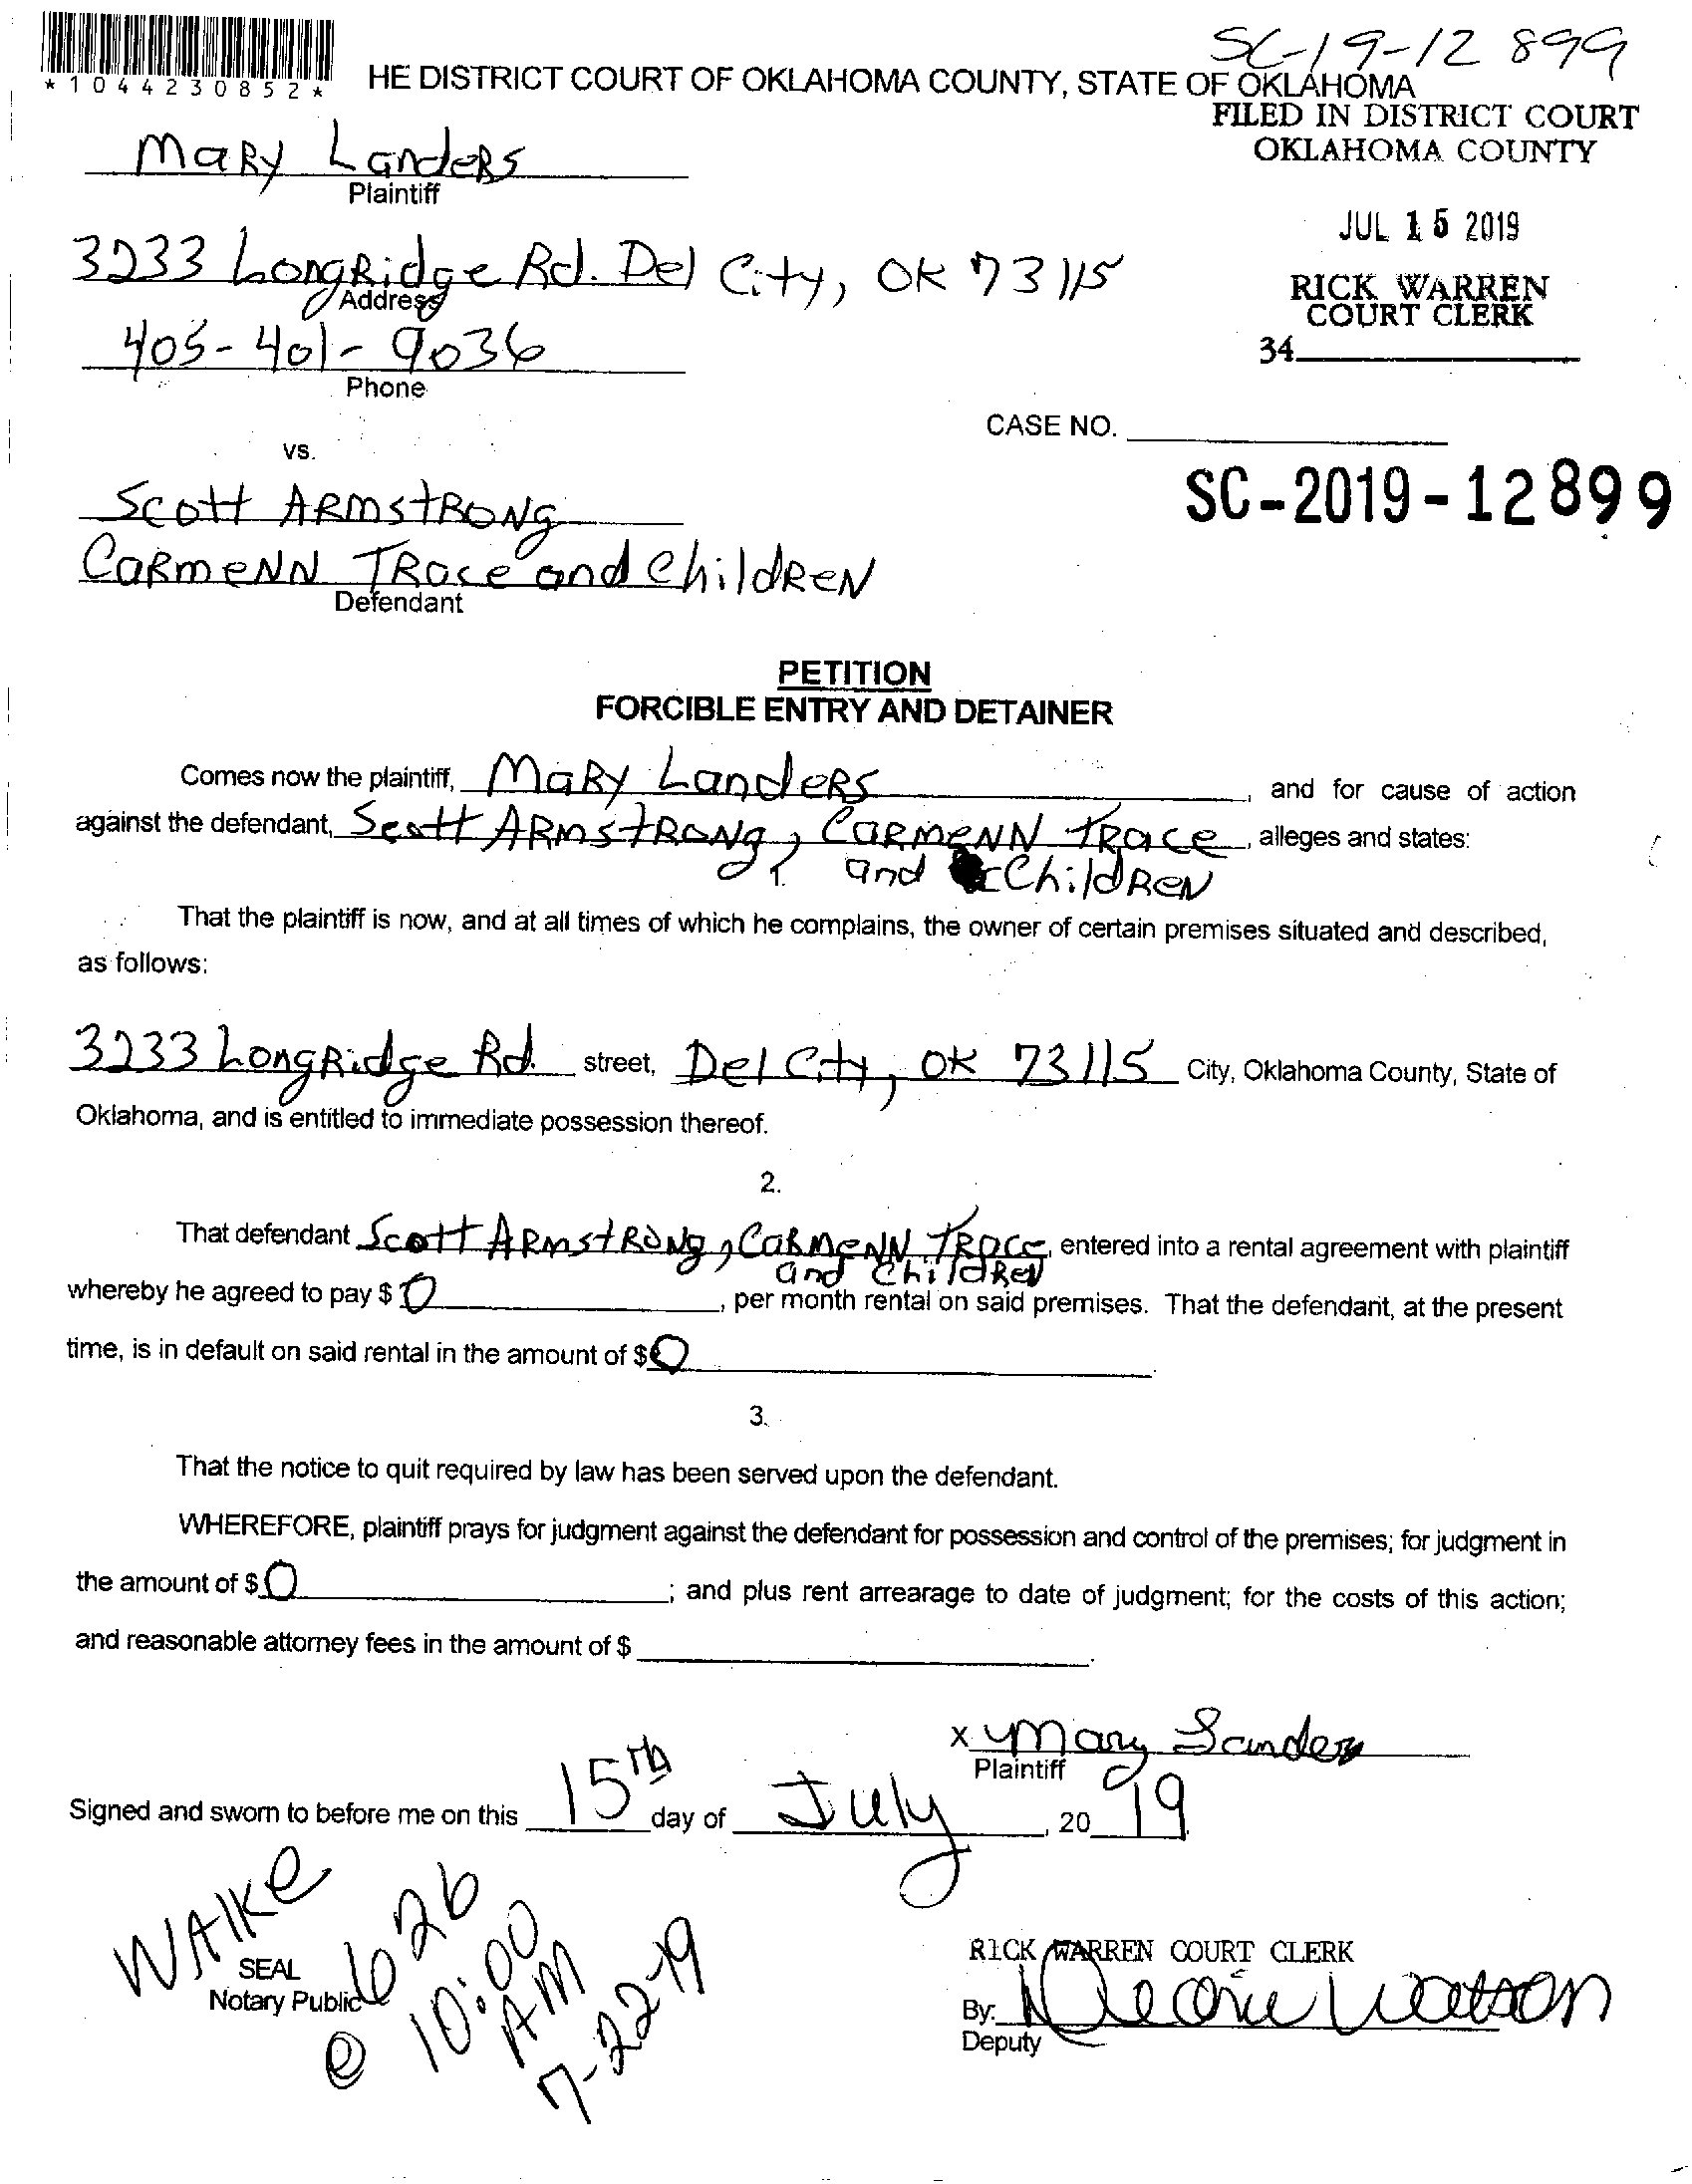 SC-19-12899
*1044230852*
HE DISTRICT COURT OF OKLAHOMA COUNTY, STATE OF OKLAHOMA
FILED IN DISTRICT COURT
OKLAHOMA COUNTY
Mary Landers
Plaintiff
JUL 15 2019
3233 LongRidge Rd. Del City, OK 73115
Address
RICK WARREN
COURT CLERK
405-401-9036
34
Phone
CASE NO.
vs.
SC-2019-12899
Scott Armstrong
Carmenn Trace and Children
Defendant
PETITION
FORCIBLE ENTRY AND DETAINER
Comes now the plaintiff, Mary Landers, and for cause of action
against the defendant, Scott Armstrong, Carmenn Trace, alleges and states:
and Children
That the plaintiff is now, and at all times of which he complains, the owner of certain premises situated and described,
as follows:
3233 LongRidge Rd. street, Del City, OK 73115 City, Oklahoma County, State of
Oklahoma, and is entitled to immediate possession thereof.
2.
That defendant Scott Armstrong, Carmenn Trace, entered into a rental agreement with plaintiff
and Children
whereby he agreed to pay $ 0, per month rental on said premises. That the defendant, at the present
time, is in default on said rental in the amount of $ 0.
3.
That the notice to quit required by law has been served upon the defendant.
WHEREFORE, plaintiff prays for judgment against the defendant for possession and control of the premises; for judgment in
the amount of $ 0; and plus rent arrearage to date of judgment; for the costs of this action;
and reasonable attorney fees in the amount of $.
x Mary Landers
Plaintiff
Signed and sworn to before me on this 15th day of July, 2019.
WAlKe
626
@ 10:00
AM
7-22-19
SEAL
Notary Public
RICK WARREN COURT CLERK
By: Watson
Deputy